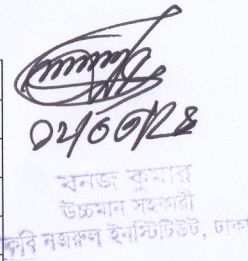 ০২/০৬/২৪
মনজ কুমার
উচ্চমান সহকারী
কবি নজরুল ইনস্টিটিউট, ঢাকা